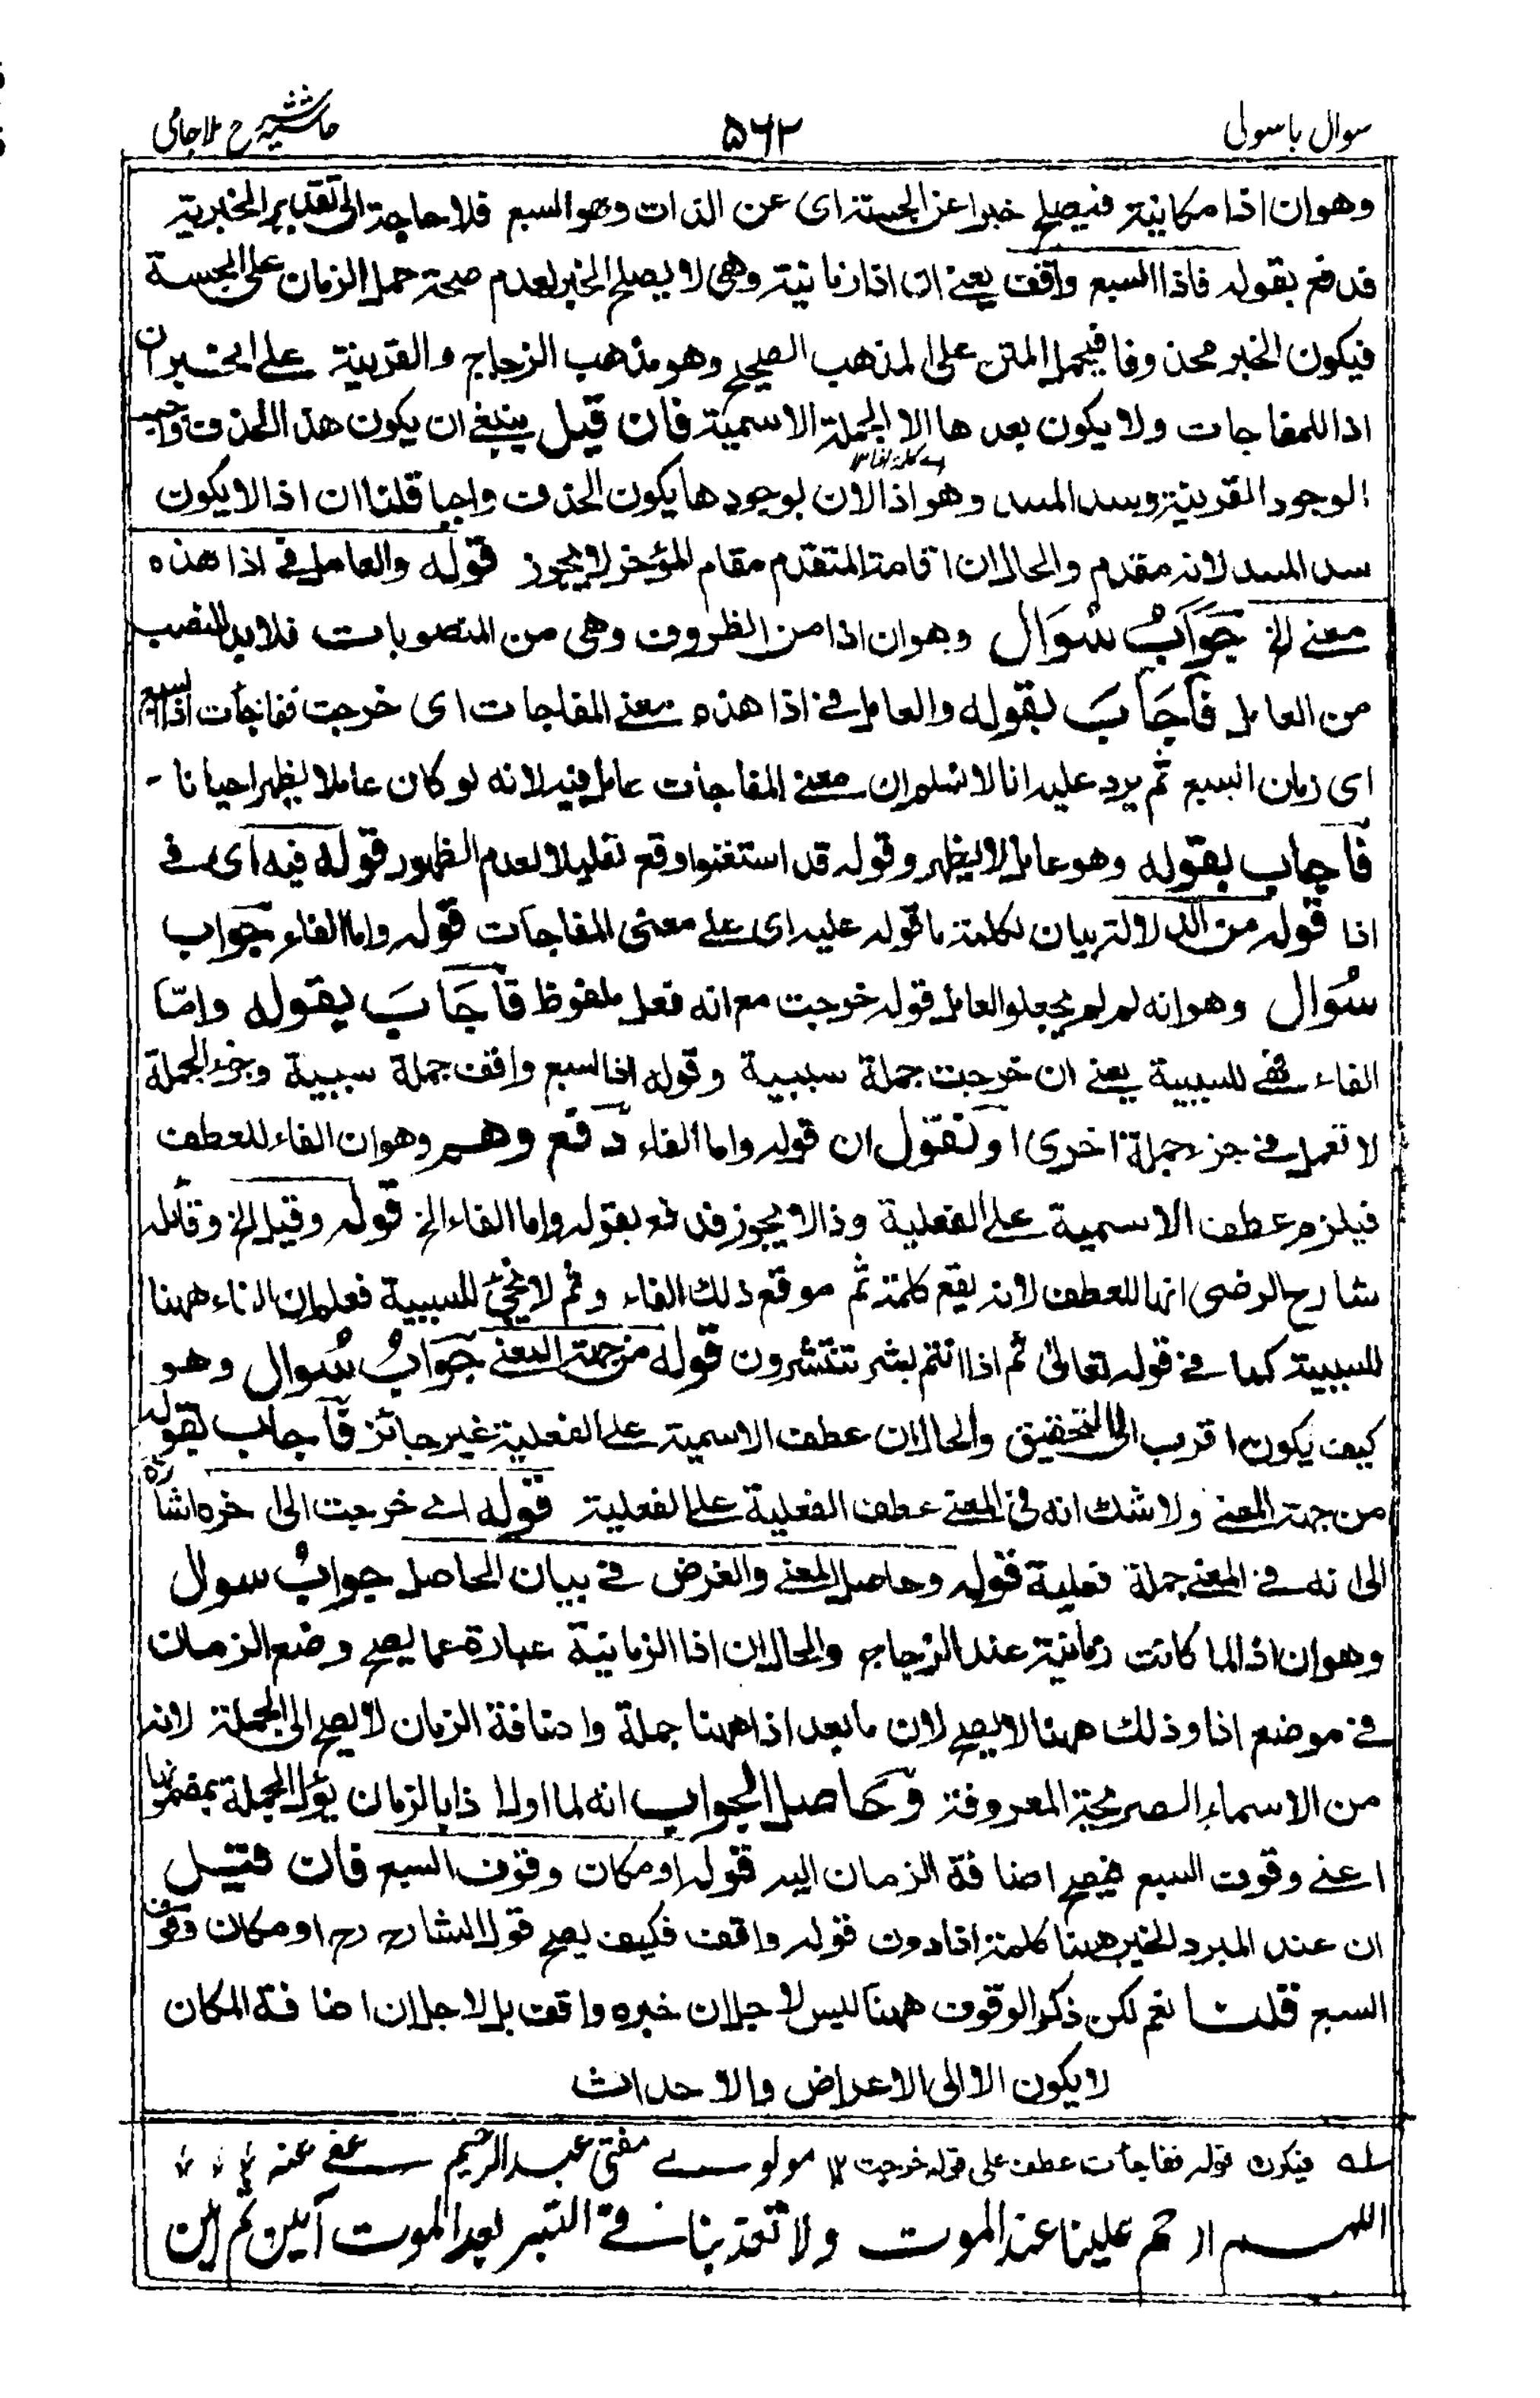 سوال باسولی ۵۶۲ حاشیہ شرح ملا جامی
وهو ان اذا مكانية فيصلح خبرا عن الجسة اى عن الذات وهو السبع فلا حاجة الى تقدير الخبرية
فدفع بقوله فاذا السبع واقف يعنى ان اذا زمانية وهى لا يصلح الخبر لعدم صحة حمل الزمان على الجسة
فيكون الخبر محذوفا فيحمل المتن على المذهب الصحيح وهو مذهب الزجاج والقرينة على الخبر ان
اذا للمفاجات ولا يكون بعدها الا الجملة الاسمية فان قيل ينبغى ان يكون هذا الحذف واجب
الوجود القرينة وسد المسد وهو اذا لان لوجودها يكون الحذف واجبا قلنا ان اذا لا يكون
سد المسد لانه مقدم والحال ان اقامة المتقدم مقام المؤخر لا يجوز قوله والعامل فى اذا هذه
معنى الخ جواب سوال وهو ان اذا من الظروف وهى من المنصوبات فلا بد للنصب
من العامل فاجاب بقوله والعامل فى اذا هذه معنى المفاجات اى خرجت ففاجأت اذا السبع
اى زمان السبع ثم يرد عليه انا لا نسلم ان معنى المفاجات عامل فيه لانه لو كان عاملا يظهر احيانا -
فاجاب بقوله وهو عامل لا يظهر وقوله قد استغنوا وقع تعليلا لعدم الظهور قوله فيه اى فى
اذا قوله من الدلالة بيان لكلمة ما قوله عليه اى على معنى المفاجات قوله واما الفاء جواب
سوال وهو انه لم لم يجعلوا العامل قوله خرجت مع انه فعل ملفوظ فاجاب بقوله واما
الفاء فهى للسببية يعنى ان خرجت جملة سببية وقوله اذا السبع واقف جملة سببية وجزء الجملة
لا تعمل فى جزء جملة اخرى او نقول ان قوله واما الفاء دفع وهم وهو ان الفاء للعطف
فيلزم عطف الاسمية على الفعلية وذا لا يجوز فدفعه بقوله واما الفاء الخ قوله وقيل الخ وقائله
شارح الرضى انها للعطف لانه يقع كلمة ثم موقع ذلك الفاء وثم لا يجئ للسببية فعلم ان الفاء ههنا
للسببية كما فى قوله تعالى ثم اذا انتم بشر تنتشرون قوله من جهة المعنى جواب سوال وهو
كيف يكون اقرب الى التحقيق والحال ان عطف الاسمية على الفعلية غير جائز فاجاب بقوله
من جهة المعنى ولا شك انه فى المعنى عطف الفعلية على الفعلية قوله اى خرجت الى اخره اشارة
الى انه فى المعنى جملة فعلية قوله وحاصل المعنى والغرض فى بيان الحاصل جواب سوال
وهو ان اذا لما كانت زمانية عند الزجاج والحال ان اذا الزمانية عبارة عما يصح وضع الزمان
فى موضع اذا وذلك ههنا لا يصح لان ما بعد اذا ههنا جملة واضافة الزمان لا يصح الى الجملة لانه
من الاسماء الصريحة المعروفة وحاصل الجواب انه لما اول اذا بالزمان يؤل الجملة بمضمونها
اعنى وقوف السبع فيصح اضافة الزمان اليه قوله او مكان وقوف السبع فان قيل
ان عند المبرد الخبر ههنا كلمة اذا دون قوله واقف فكيف يصح قول الشارح رح او مكان وقوف
السبع قلنا نعم لكن ذكر الوقوف ههنا ليس لاجل ان خبره واقف بل لاجل ان اضافة المكان
لا يكون الا الى الاعراض والاحداث
له فيكون قوله ففاجأت عطف على قوله خرجت ١٢ مولوى مفتى عبد الرحيم عفى عنه
اللهم ارحم علينا عند الموت ولا تعذبنا فى القبر بعد الموت آمين ثم آمين